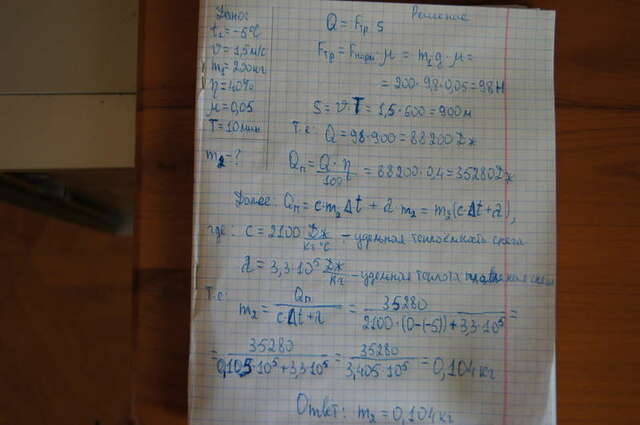 Дано:
t₁ = -5°C
v = 1,5 м/с
m₁ = 200 кг
η = 40%
μ = 0,05
T = 10 мин
m₂ = ?
Решение
Q = Fтр · S
Fтр = Fнорм · μ = m₁g · μ =
= 200 · 9,8 · 0,05 = 98 Н
S = v · T = 1,5 · 600 = 900 м
Т.е: Q = 98 · 900 = 88200 Дж
Qп = Q · η / 100 = 88200 · 0,4 = 35280 Дж
Далее: Qп = c · m₂ Δt + λ · m₂ = m₂(c · Δt + λ),
где: c = 2100 Дж / кг °C – удельная теплоёмкость снега
λ = 3,3 · 10⁵ Дж / кг – удельная теплота плавления снега
Т.е: m₂ = Qп / c · Δt + λ = 35280 / 2100 · (0-(-5)) + 3,3 · 10⁵ =
= 35280 / 0,105 · 10⁵ + 3,3 · 10⁵ = 35280 / 3,405 · 10⁵ = 0,104 кг
Ответ: m₂ = 0,104 кг